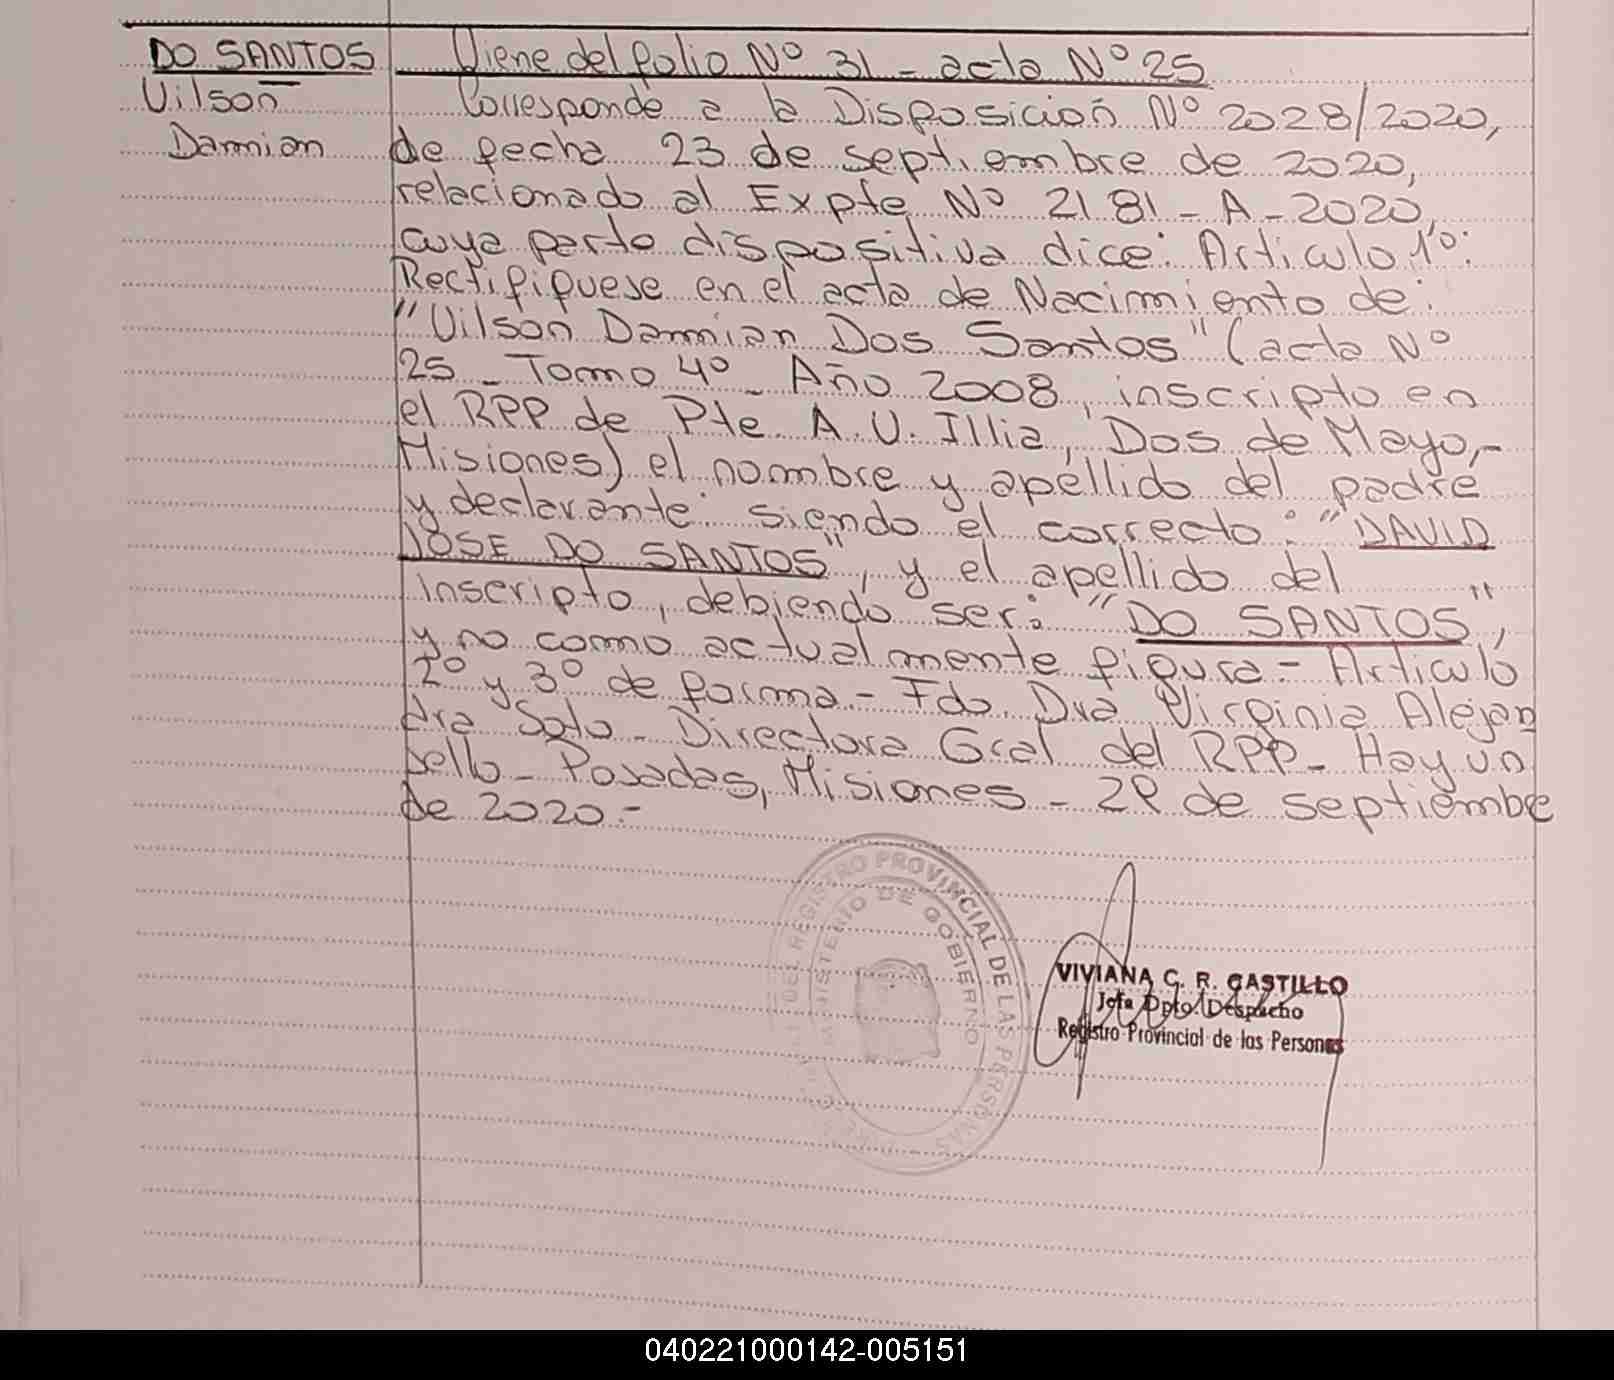 DO SANTOS
Vilson
Damian
Viene del folio Nº 31 - acta Nº 25
Corresponde a la Disposición Nº 2028/2020,
de fecha 23 de septiembre de 2020,
relacionado al Expte Nº 2181 - A - 2020,
cuya parte dispositiva dice: Articulo 1º:
Rectifiquese en el acta de Nacimiento de:
"Vilson Damian Dos Santos" (acta Nº
25 - Tomo 4º - Año 2008, inscripto en
el RPP de Pte A.U. Illia, Dos de Mayo,-
Misiones) el nombre y apellido del padre
y declarante: siendo el correcto: "DAVID
JOSE DO SANTOS", y el apellido del
inscripto, debiendo ser: "DO SANTOS",
y no como actualmente figura - Articulo
2º y 3º de forma - Fdo. Dra Virginia Alejan
dra Soto - Directora Gral del RPP - Hay un
sello - Posadas, Misiones - 29 de septiembre
de 2020.-
REGISTRO PROVINCIAL DE LAS PERSONAS
MINISTERIO DE GOBIERNO
VIVIANA C. R. CASTILLO
Jefa Dpto. Despacho
Registro Provincial de las Personas
040221000142-005151